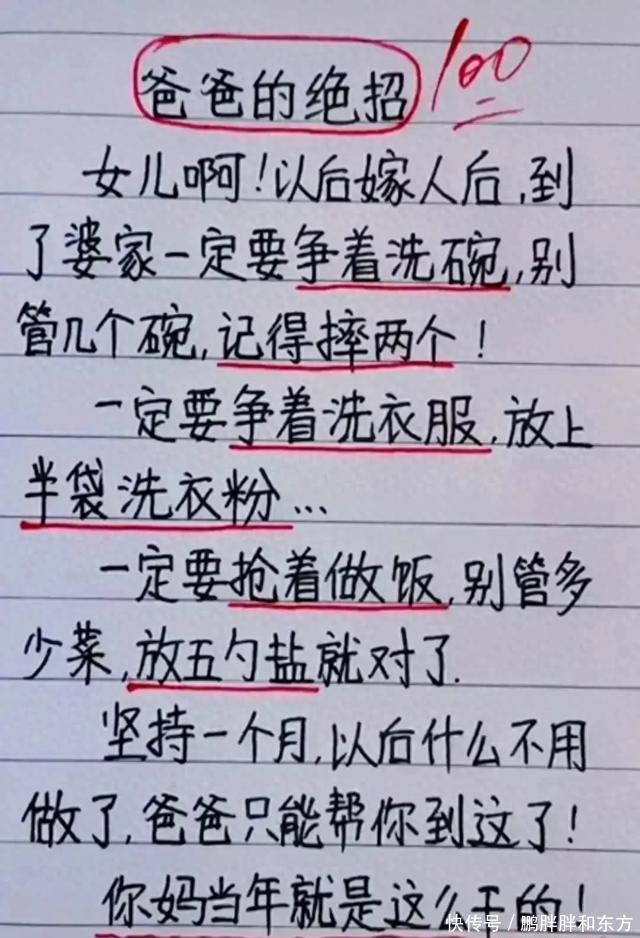 爸爸的绝招 100
女儿啊！以后嫁人后，到
了婆家一定要争着洗碗，别
管几个碗，记得摔两个！
一定要争着洗衣服，放上
半袋洗衣粉…
一定要抢着做饭，别管多
少菜，放五勺盐就对了.
坚持一个月，以后什么不用
做了，爸爸只能帮你到这了！
你妈当年就是这么干的！
快传号／鹏胖胖和东方